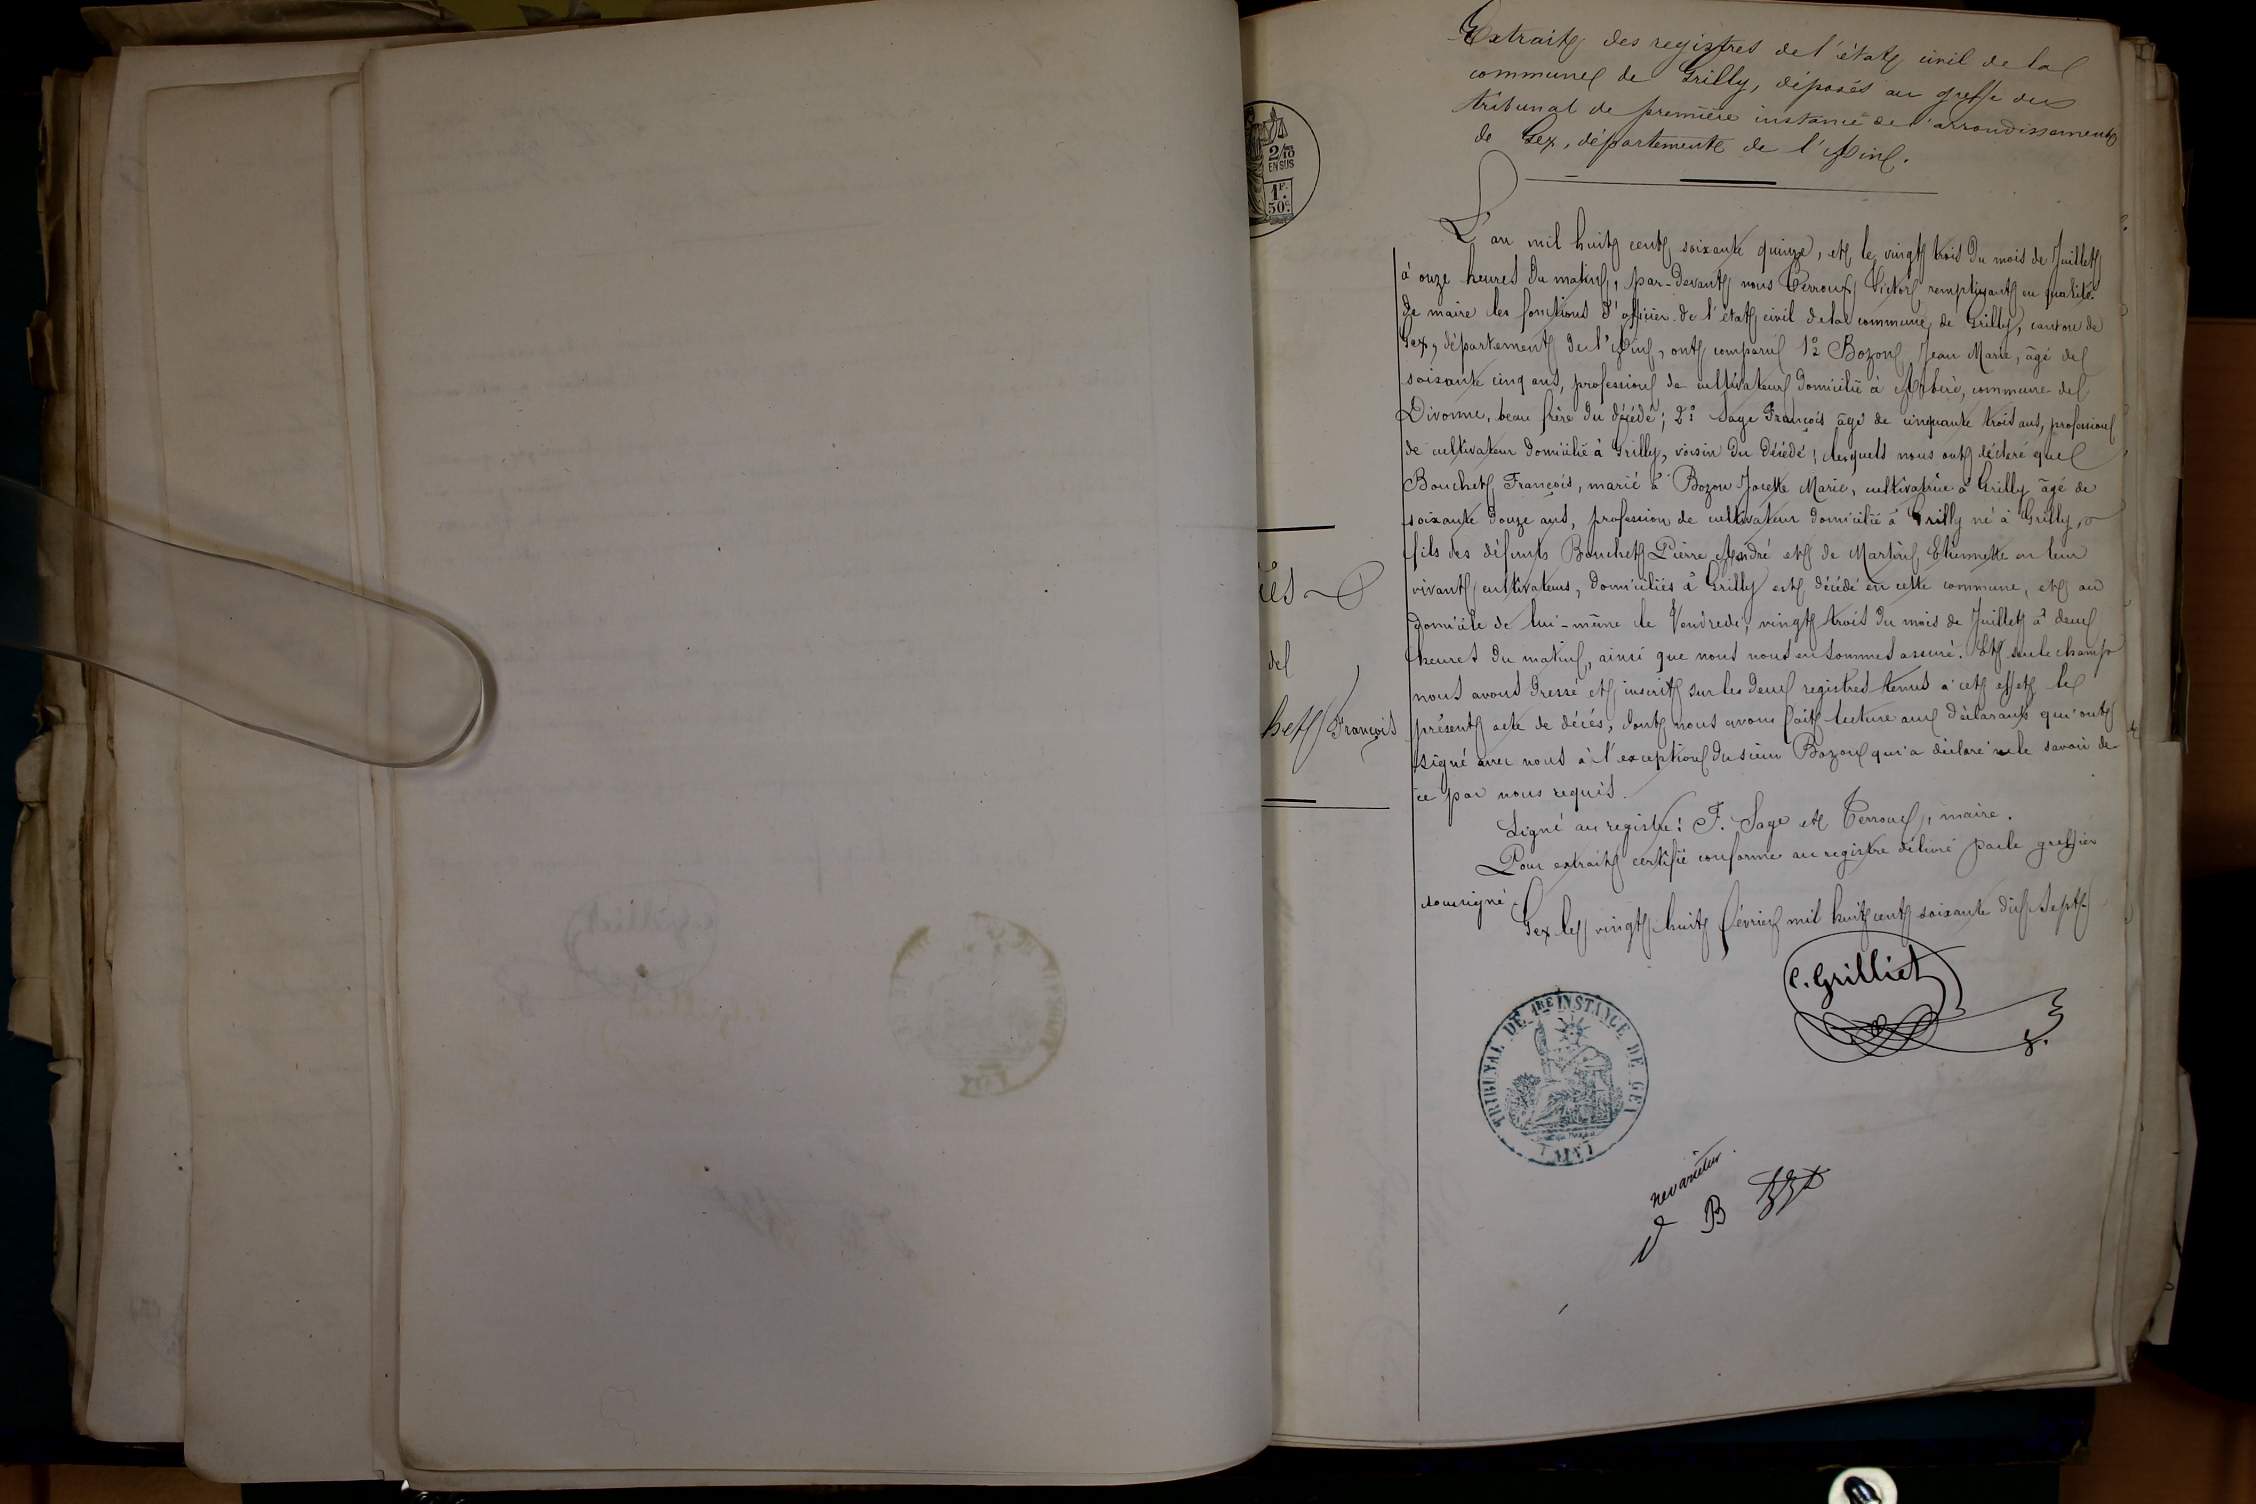 Extrait des registres de l'état civil de la
commune de Grilly, déposés au greffe du
tribunal de première instance de l'arrondissement
de Gex, département de l'Ain.
2/10
EN SUS
1F.
50c.
L'an mil huit cent soixante quinze, et le vingt trois du mois de Juillet
à onze heures du matin, par-devant nous Perroux Victor remplissant en qualité
de maire les fonctions d'officier de l'état civil de la commune de Grilly, canton de
Gex, département de l'Ain, ont comparu 1o Bozon Jean Marie, âgé de
soixante cinq ans, profession de cultivateur domicilié à Arbère, commune de
Divonne, beau frère du décédé; 2o Sage François âgé de cinquante trois ans, profession
de cultivateur domicilié à Grilly, voisin du décédé; lesquels nous ont déclaré que
Bouchet François, marié à Bozon Josette Marie, cultivatrice à Grilly âgé de
soixante douze ans, profession de cultivateur domicilié à Grilly né à Grilly,
fils des défunts Bouchet Pierre André et de Martin Etiennette en leur
vivant cultivateurs, domiciliés à Grilly est décédé en cette commune, et au
domicile de lui-même le Vendredi, vingt trois du mois de Juillet à deux
heures du matin, ainsi que nous nous en sommes assuré. Et sur le champ
nous avons dressé et inscrit sur les deux registres tenus à cet effet le
présent acte de décès, dont nous avons fait lecture aux déclarants qui ont
signé avec nous à l'exception du sieur Bozon qui a déclaré ne le savoir de
ce par nous requis.
Signé au registre: F. Sage et Perroux, maire.
Pour extrait certifié conforme au registre délivré par le greffier
soussigné.
Gex le vingt huit février mil huit cent soixante dix sept
ès
de
het François
C. Grilliet
TRIBUNAL DE 1RE INSTANCE DE GEX
(AIN)
ne varietur
B